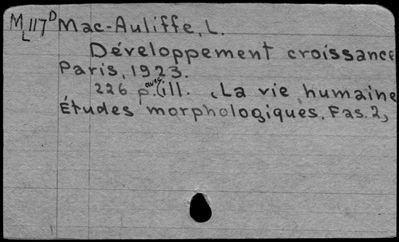 M117D Mac-Auliffe, L.
L
Développement croissance
Paris, 1923.
226 p. ill. (La vie humaine
Études morphologiques. Fas. 2,